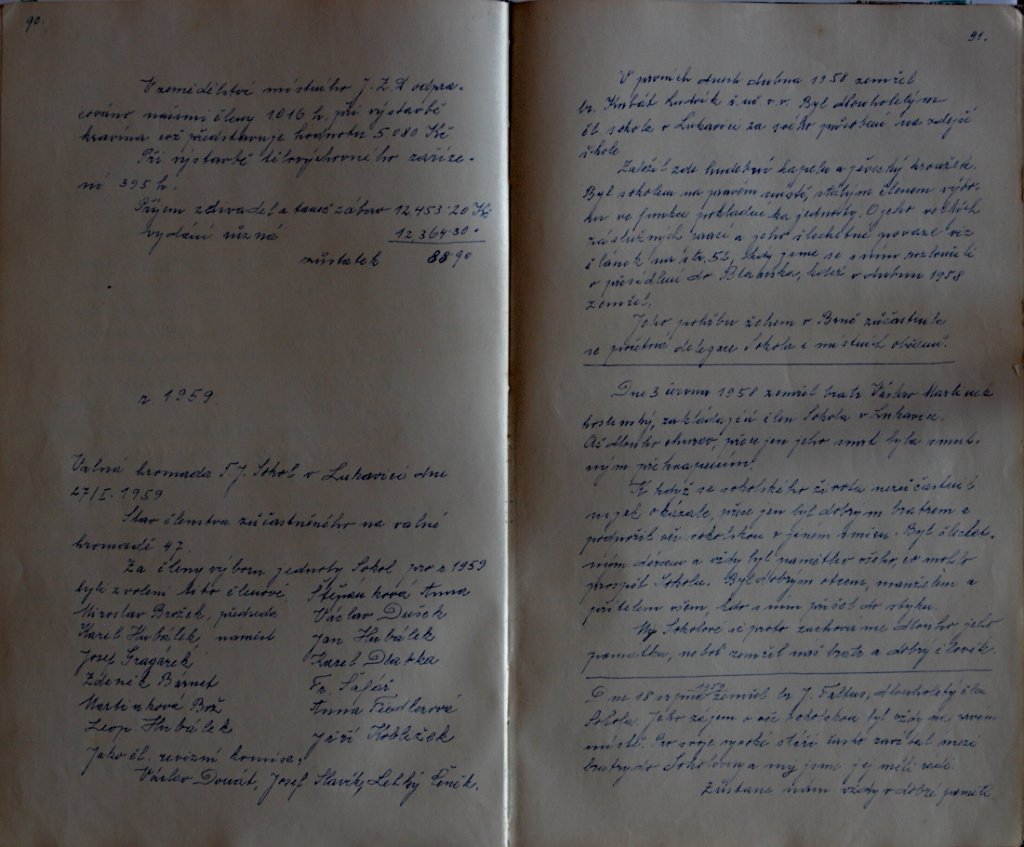 90.
V zemědělství místního J.Z.D odpra-
cováno našimi členy 1016 h. při výstavbě
kravína což představuje hodnotu 5.080 Kč.
Při výstavbě tělovýchovného zaříze-
ní 395 h.
Příjem z divadel a taneč. zábav 12.453·20 Kč
vydání různá 12.364·30·
zůstatek 88·90
r 1959.
Valná hromada T.J. Sokol v Lukavici dne
27/I. 1959
Stav členstva zúčastněného na valné
hromadě 47.
Za členy výboru jednoty Sokol pro r 1959
byli zvoleni tito členové: Štěpánková Anna
Miroslav Brožek, předseda Václav Dušek
Karel Hubálek náměst Jan Hubálek
Josef Gragárek Karel Dlabka
Zdeněk Bárnet Fr. Šafář
Martinková Bož Anna Fiedlerová
Leop Hubálek Jiří Kobližek
Jako čl. revizní komise:
Václav Doucet, Josef Slavík, Lehký Čeněk.
91.
V prvních dnech dubna 1958 zemřel
br. Kubát Ludvík ř. uč v v. Byl dlouholetým
čl. sokola v Lukavici za svého působení na zdejší
škole.
Založil zde hudební kapelu a pěvecký kroužek.
Byl sokolem na pravém místě, stálým členem výbo-
ru ve funkci pokladníka jednoty. O jeho velkých
záslužných prací a jeho šlechetné povaze viz
článek na str. 52, kdy jsme se s ním rozloučili
o přesídlení do Blanska, kdež v dubnu 1958
zemřel.
Jeho pohřbu žehem v Brně zúčastnila
se početná delegace Sokola i místních občanů.
Dne 3 června 1958 zemřel bratr Václav Martinek
hostinský, zakládající člen Sokola v Lukavici.
Ač dlouho churav, přece jen jeho smrt byla smut-
ným překvapením.
I když se sokolského života nezúčastnil
nijak okázale, přece jen byl dobrým bratrem a
podnožil věc sokolskou v jiném směru. Byl šlechet-
ným dárcem a vždy byl pamětliv všeho, co mohlo
prospět Sokolu. Byl dobrým otcem, manželem a
přítelem všem, kdo s ním přišel do styku.
My Sokolové si proto zachováme dlouho jeho
památku, neboť zemřel náš bratr a dobrý člověk.
Dne 18 srpna 1959 zemřel br J. Taltus, dlouholetý člen
Sokola. Jeho zájem o věc sokolskou byl vždy na prvém
místě. Pro svoje vysoké stáří často zavítal mezi
bratry do Sokolovny a my jsme jej měli rádi.
Zůstane nám vždy v dobré paměti.